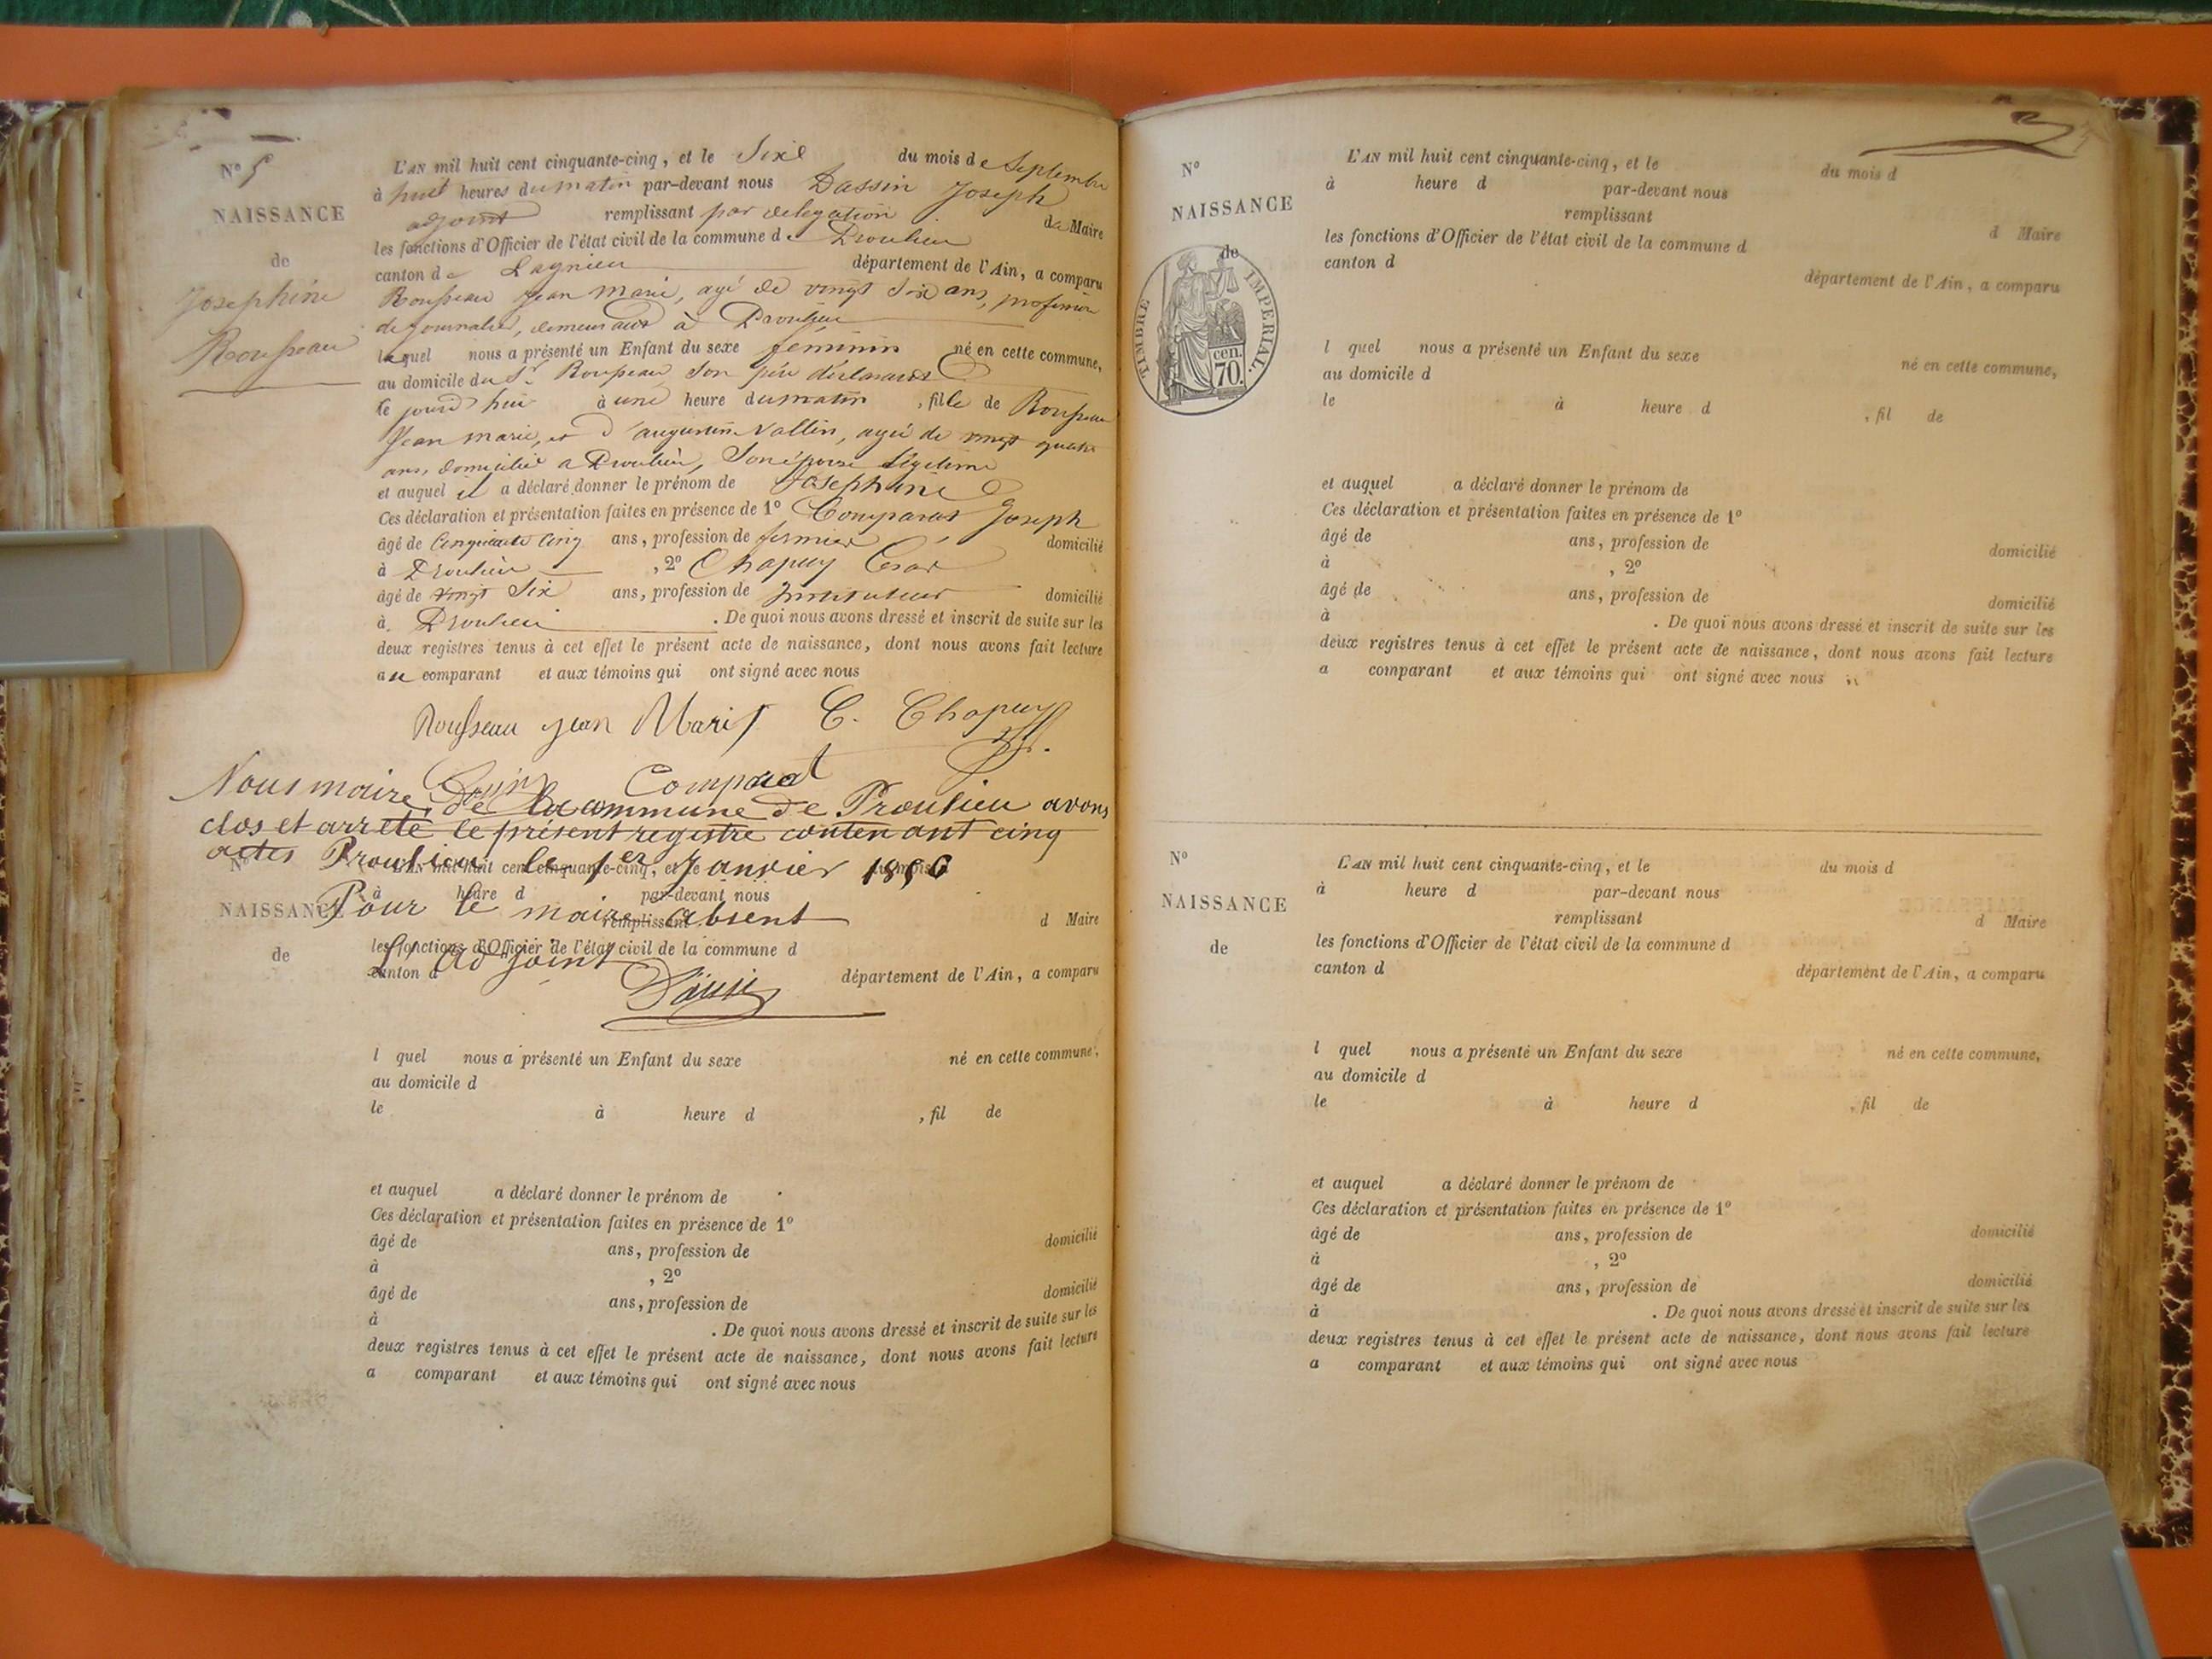 N° 5
NAISSANCE
de
Josephine
Rousseau
L'AN mil huit cent cinquante-cinq, et le Six du mois de Septembre
à huit heures du matin par-devant nous Dassin Joseph
adjoint remplissant par delegation du Maire
les fonctions d'Officier de l'état civil de la commune de Proulieu
canton de Lagnieu département de l'Ain, a comparu
Rousseau Jean Marie, agé de vingt Six ans, profession
de journalier, demeurant à Proulieu
lequel nous a présenté un Enfant du sexe féminin né en cette commune,
au domicile du Sr Rousseau Son père déclarant
le jourd'hui à une heure du matin, fille de Rousseau
Jean marie, et d'augustine Vallin, agée de vingt quatre
ans, domiciliée a Proulieu, Son épouse légitime
et auquel il a déclaré donner le prénom de Josephine
Ces déclaration et présentation faites en présence de 1° Comparat Joseph
âgé de Cinquante Cinq ans, profession de fermier domicilié
à Proulieu, 2° Chapuy Cesar
âgé de vingt Six ans, profession de Instituteur domicilié
à Proulieu. De quoi nous avons dressé et inscrit de suite sur les
deux registres tenus à cet effet le présent acte de naissance, dont nous avons fait lecture
au comparant et aux témoins qui ont signé avec nous
Rousseau jean Marie C. Chapuy
Comparat
Nous maire de la commune de Proulieu avons
clos et arrêté le présent registre contenant cinq
actes Proulieu le 1er Janvier 1856
Pour le maire absent
L'adjoint
N°
NAISSANCE
de
L'AN mil huit cent cinquante-cinq, et le du mois d
à heure d par-devant nous
remplissant d Maire
les fonctions d'Officier de l'état civil de la commune d
canton d département de l'Ain, a comparu
l quel nous a présenté un Enfant du sexe né en cette commune,
au domicile d
le à heure d , fil de
et auquel a déclaré donner le prénom de
Ces déclaration et présentation faites en présence de 1°
âgé de ans, profession de domicilié
à , 2°
âgé de ans, profession de domicilié
à . De quoi nous avons dressé et inscrit de suite sur les
deux registres tenus à cet effet le présent acte de naissance, dont nous avons fait lecture
a comparant et aux témoins qui ont signé avec nous
N°
NAISSANCE
de
TIMBRE IMPERIAL.
70. cen.
L'AN mil huit cent cinquante-cinq, et le du mois d
à heure d par-devant nous
remplissant d Maire
les fonctions d'Officier de l'état civil de la commune d
canton d département de l'Ain, a comparu
l quel nous a présenté un Enfant du sexe né en cette commune,
au domicile d
le à heure d , fil de
et auquel a déclaré donner le prénom de
Ces déclaration et présentation faites en présence de 1°
âgé de ans, profession de domicilié
à , 2°
âgé de ans, profession de domicilié
à . De quoi nous avons dressé et inscrit de suite sur les
deux registres tenus à cet effet le présent acte de naissance, dont nous avons fait lecture
a comparant et aux témoins qui ont signé avec nous
N°
NAISSANCE
de
L'AN mil huit cent cinquante-cinq, et le du mois d
à heure d par-devant nous
remplissant d Maire
les fonctions d'Officier de l'état civil de la commune d
canton d département de l'Ain, a comparu
l quel nous a présenté un Enfant du sexe né en cette commune,
au domicile d
le à heure d , fil de
et auquel a déclaré donner le prénom de
Ces déclaration et présentation faites en présence de 1°
âgé de ans, profession de domicilié
à , 2°
âgé de ans, profession de domicilié
à . De quoi nous avons dressé et inscrit de suite sur les
deux registres tenus à cet effet le présent acte de naissance, dont nous avons fait lecture
a comparant et aux témoins qui ont signé avec nous